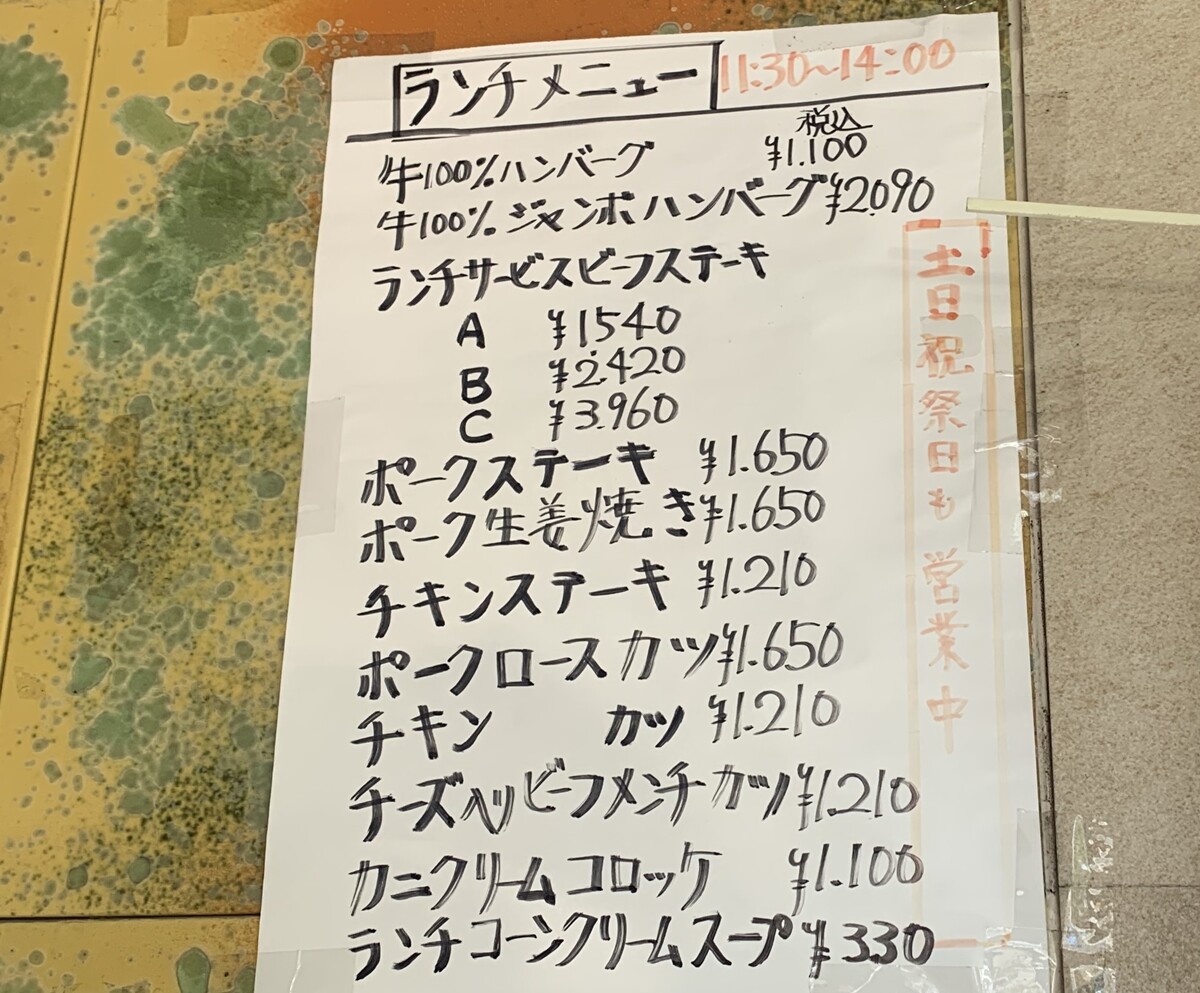 ランチメニュー 11:30~14:00
税込
牛100%ハンバーグ ¥1.100
牛100%ジャンボハンバーグ ¥2.090
ランチサービスビーフステーキ
A ¥1540
B ¥2.420
C ¥3.960
ポークステーキ ¥1.650
ポーク生姜焼き ¥1.650
チキンステーキ ¥1.210
ポークロースカツ ¥1.650
チキン カツ ¥1.210
チーズ入リビーフメンチカツ ¥1.210
カニクリームコロッケ ¥1.100
ランチコーンクリームスープ ¥330
土日祝祭日も営業中